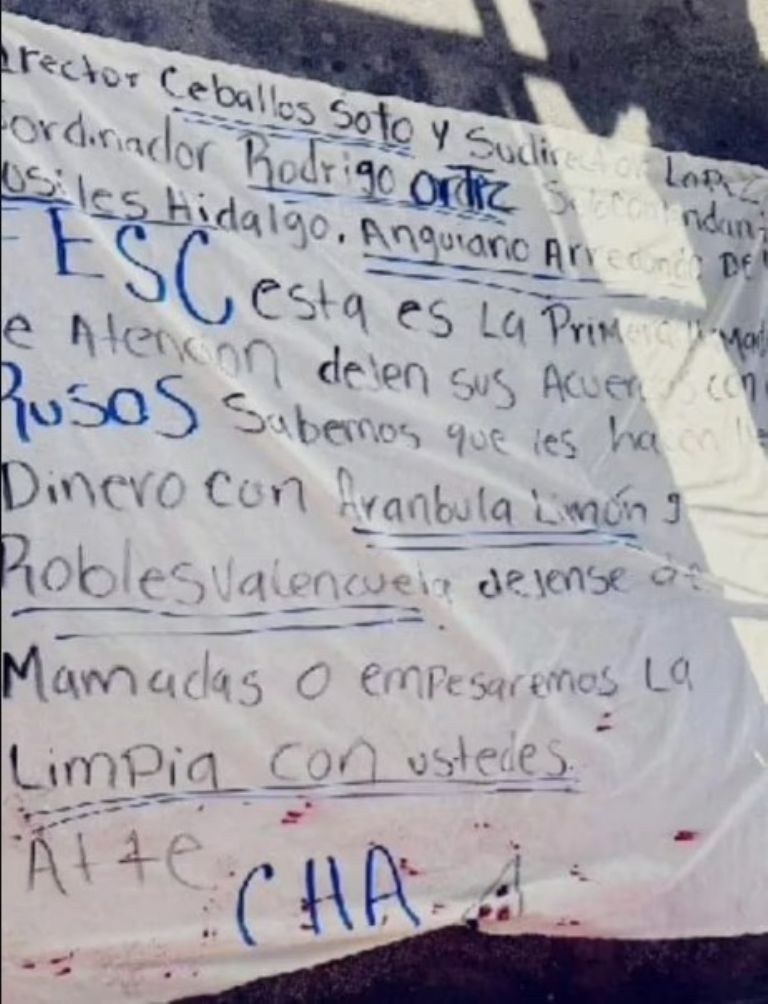 irector Ceballos Soto y Sudirector Lopez
oordinador Rodrigo ortiz Subcomandan
osiles Hidalgo. Anguiano Arredondo DE
FESC esta es La Primera llamad
e Atencion dejen sus Acuerdos con
Rusos Sabemos que les hacen lle
Dinero con Aranbula Limón y
Robles Valencuela dejense de
Mamadas o empesaremos La
Limpia con ustedes.
Atte. CHA